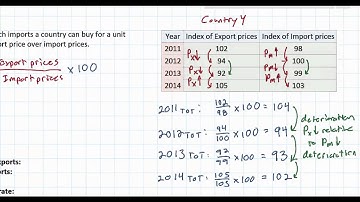 Country Y
ch imports a country can buy for a unit
ort price over import prices.
Export prices
Import prices × 100
Year Index of Export prices Index of Import prices
2011 Px↓ 102 Pm↑ 98
2012 94 100
2013 Px↓ 92 Pm↓ 99
2014 Px↑ 105 Pm↑ 103
2011 ToT: 102/98 × 100 = 104
deterioration
2012 ToT: 94/100 × 100 = 94
Px↓ relative
to Pm↓
2013 ToT: 92/99 × 100 = 93
deterioration
2014 ToT: 105/103 × 100 = 102
xports:
orts:
rate: